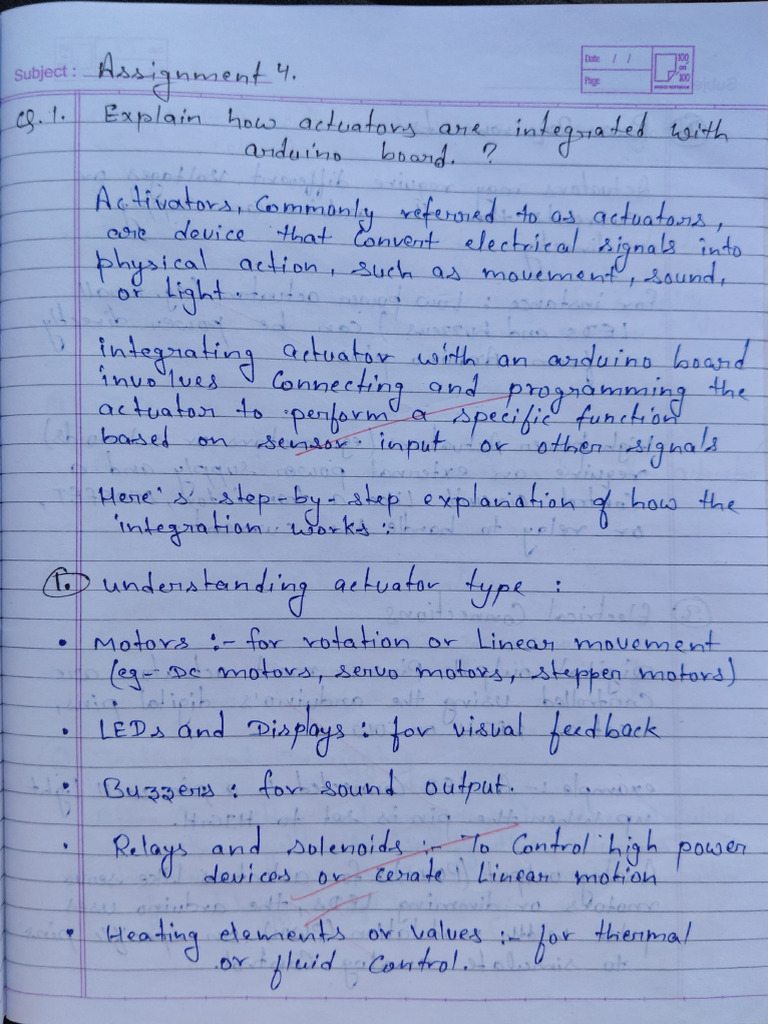 Subject : Assignment 4.
Date / /
Page
100 on 100
Q.1. Explain how actuators are integrated with
arduino board. ?
Activators, Commonly referred to as actuators,
are device that Convert electrical signals into
physical action, such as movement, sound,
or light.
integrating actuator with an arduino board
involves Connecting and programming the
actuator to perform a specific function
based on sensor input or other signals
Here's step-by-step explaniation of how the
integration works :
1. understanding actuator type :
• Motors :- for rotation or Linear movement
(eg- DC motors, servo motors, stepper motors)
• LEDs and Displays : for visual feedback
• Buzzers : for sound output.
• Relays and solenoids :- To Control high power
devices or cerate Linear motion
• Heating elements or values :- for thermal
or fluid Control.